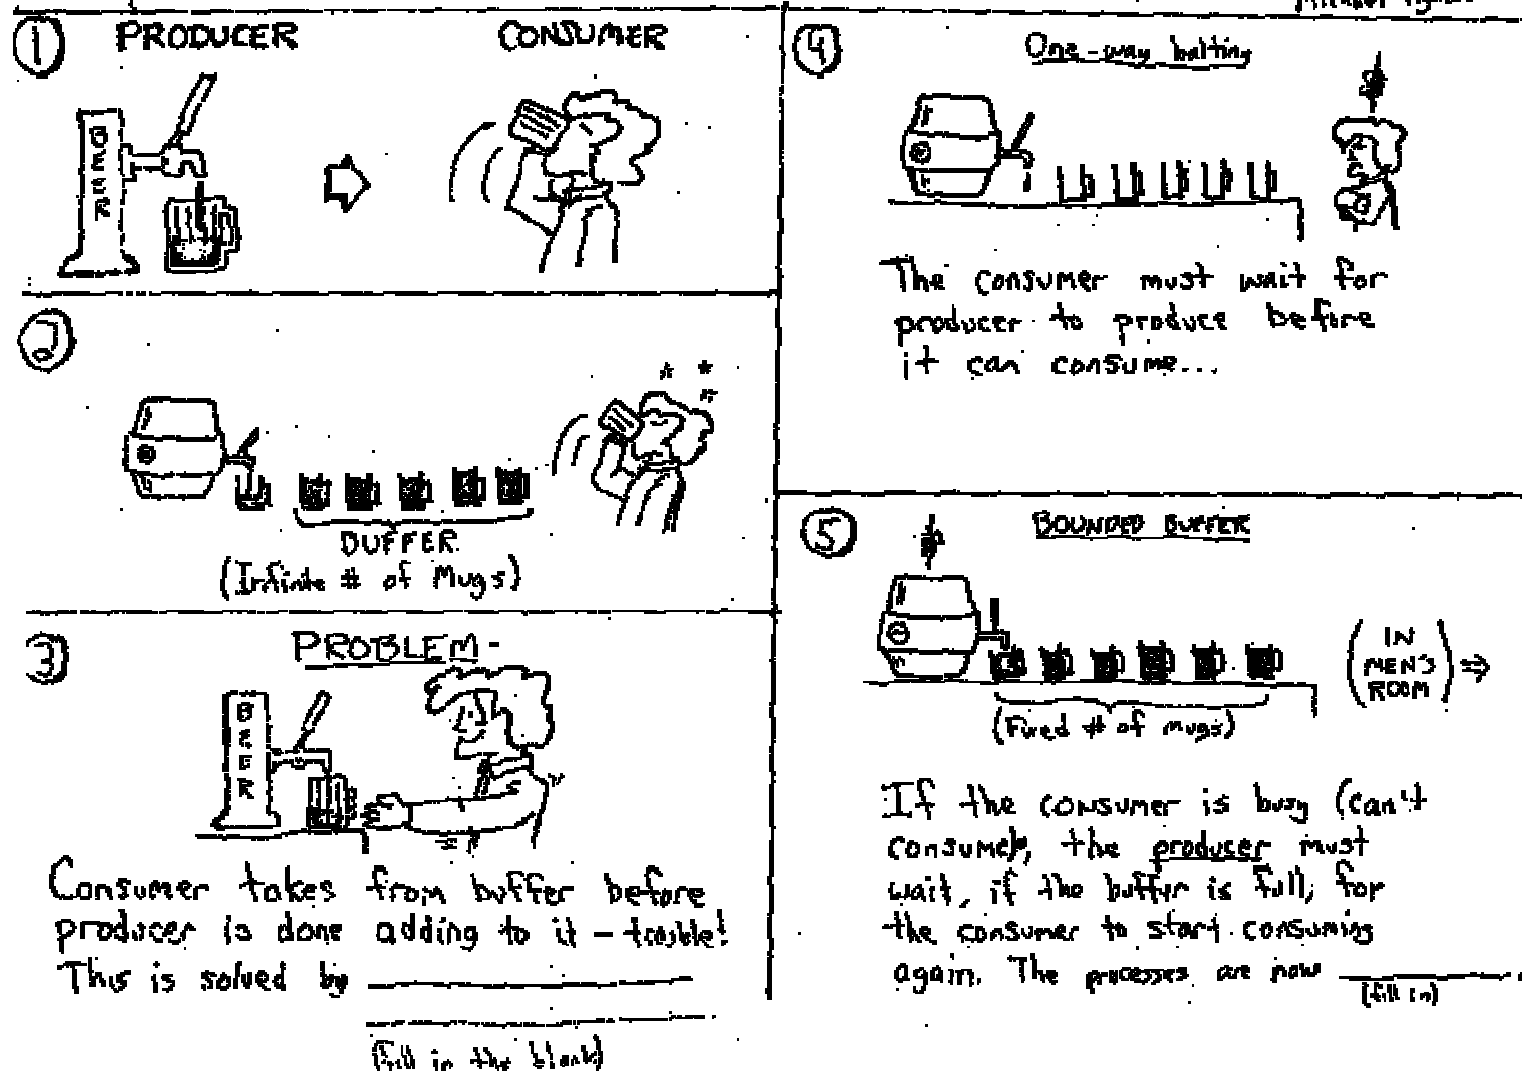 1
PRODUCER
CONSUMER
BEER
2
BUFFER
(Infinite # of Mugs)
3
PROBLEM-
BEER
Consumer takes from buffer before
producer is done adding to it - trouble!
This is solved by
(fill in the blank)
4
One-way halting
The consumer must wait for
producer to produce before
it can consume...
5
BOUNDED BUFFER
(IN
MEN'S
ROOM) ⇒
(Fixed # of mugs)
If the consumer is busy (can't
consume), the producer must
wait, if the buffer is full, for
the consumer to start consuming
again. The processes are now
(fill in)